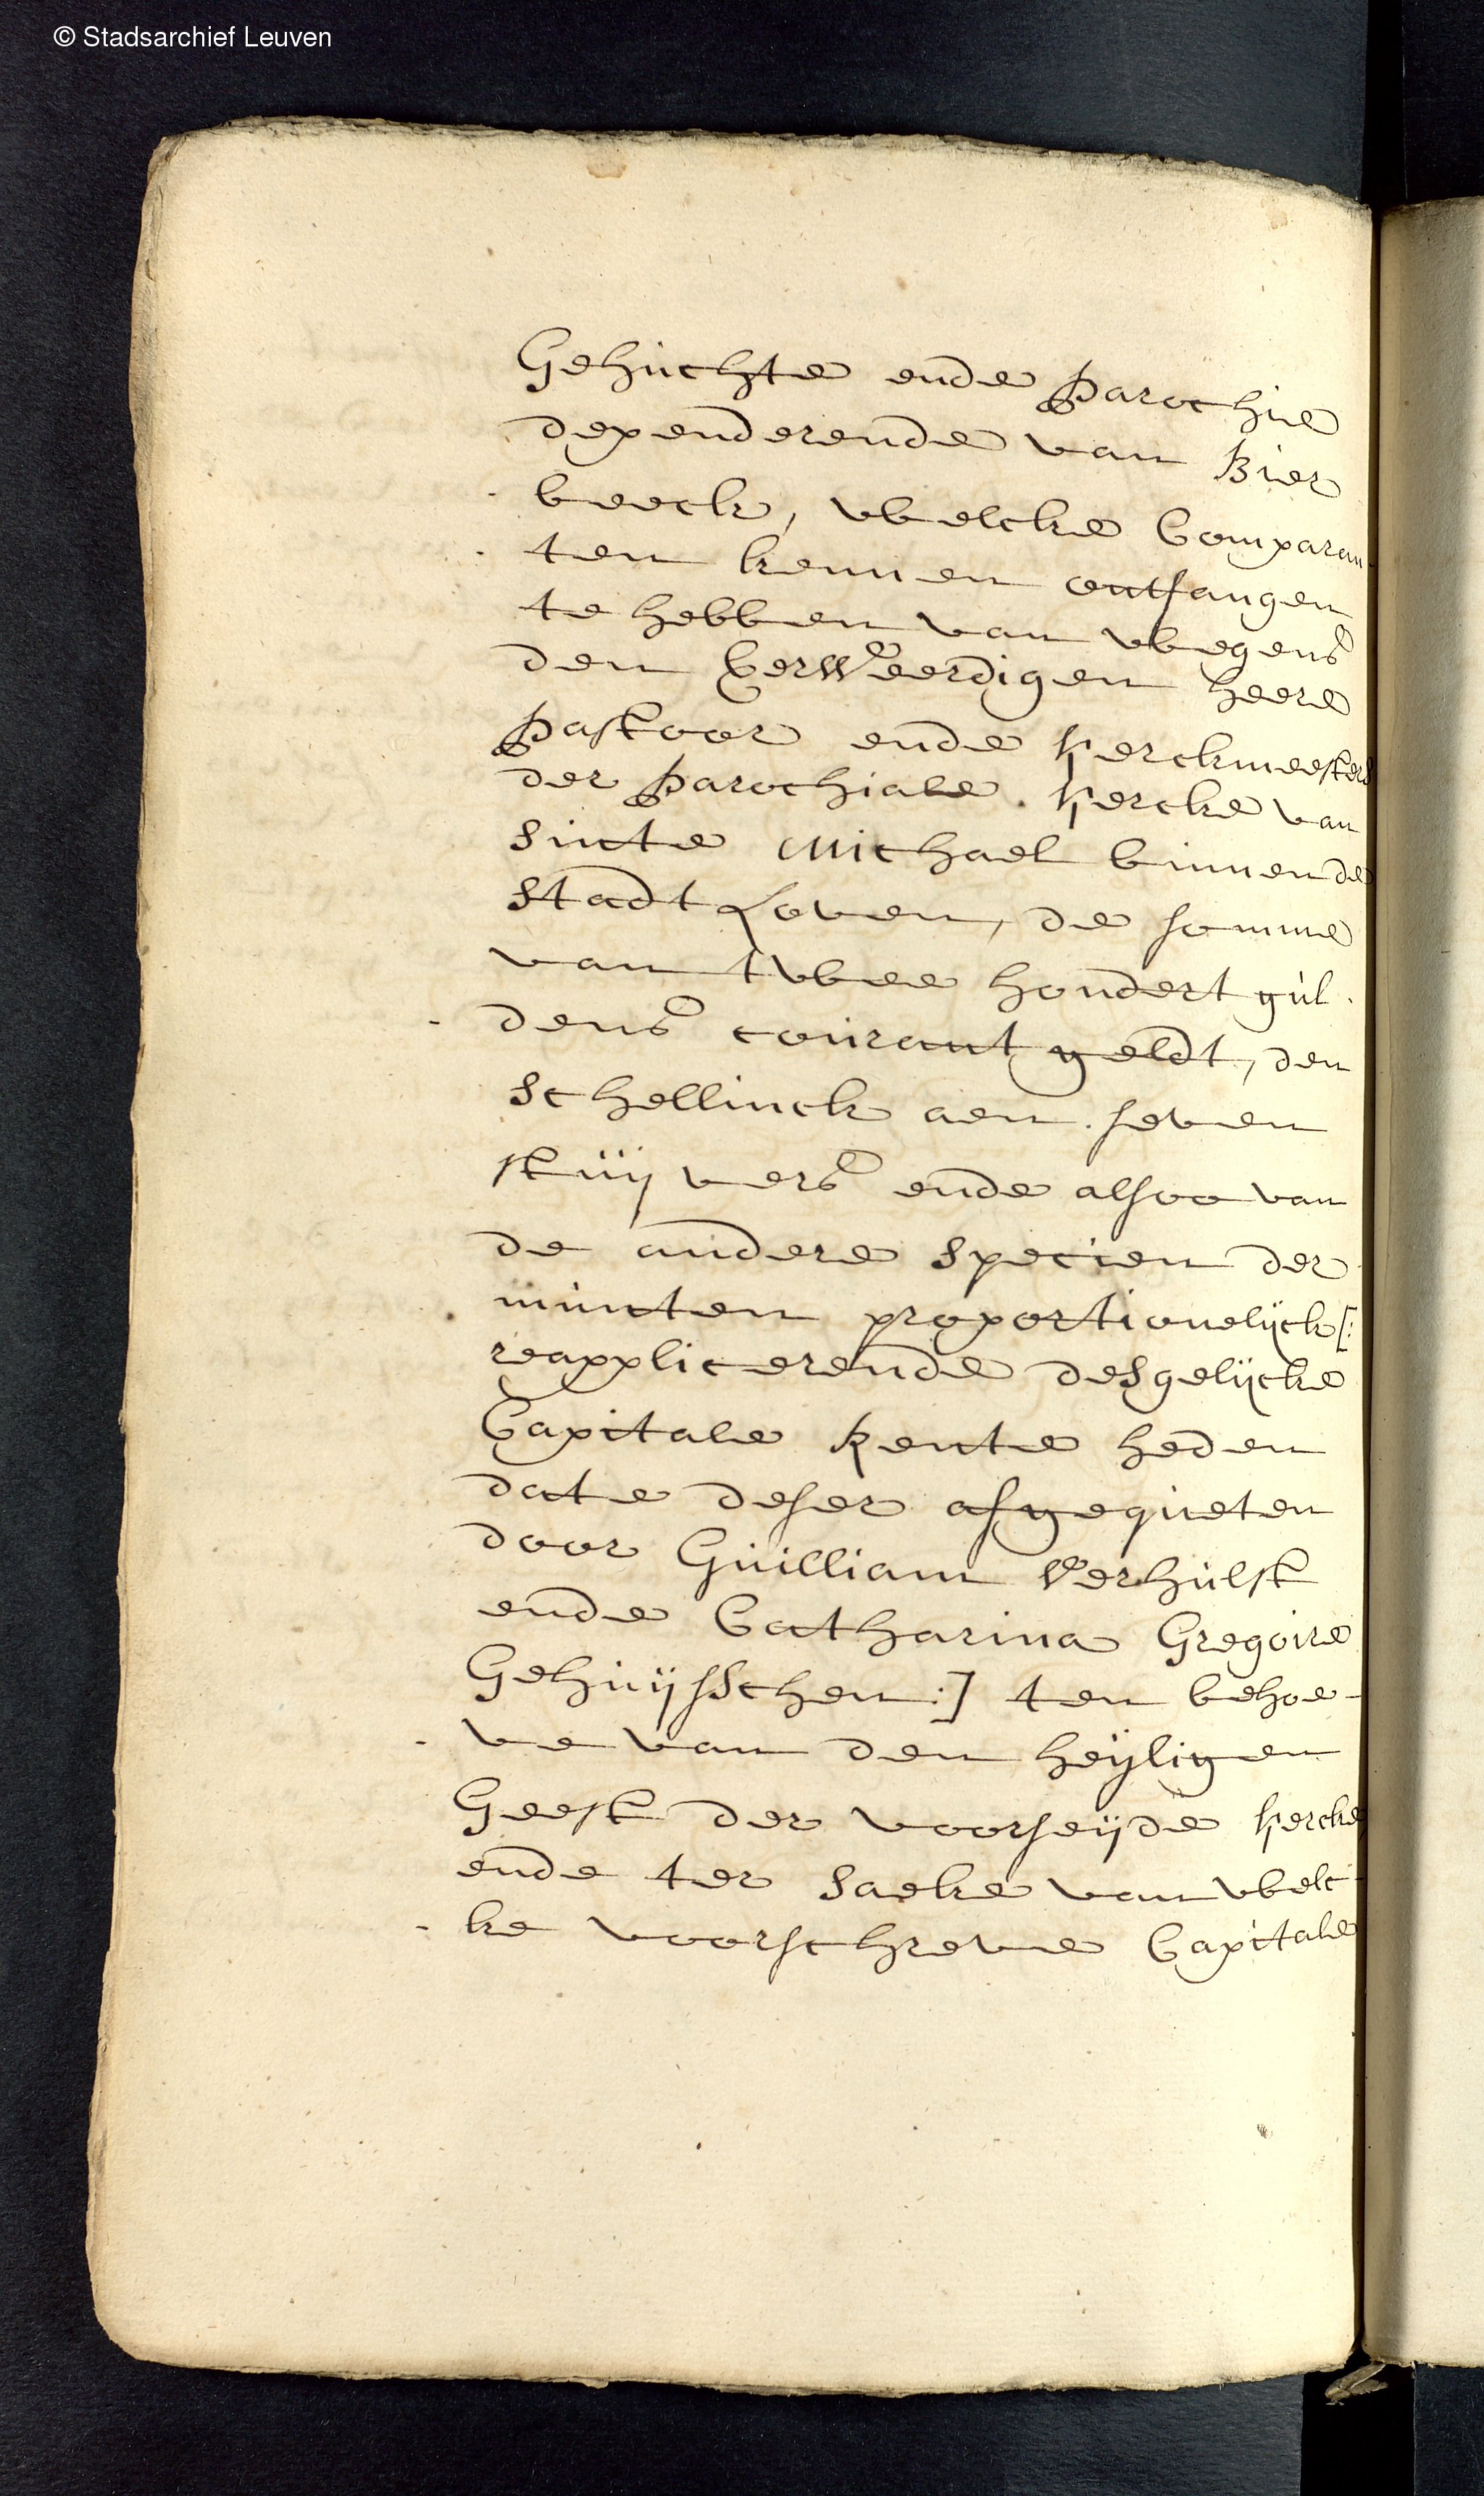 © Stadsarchief Leuven
Gehuchte ende Parochie
dependerende van Bier
beeck, welcke Comparan-
ten kennen ontfangen
te hebben van wegens
den Eerweerdigen heere
Pastoor ende Kerckmeesters
der Parochiale Kercke van
Sinte Michael binnen de
Stadt Loven, de somme
van twee hondert gul-
dens courant geldt, den
Schellinck aen seven
stuyvers ende alsoo van
de andere specien der
munten proportionelijck [:
reapplicerende desgelijcke
Capitale Rente heden
date deser afgequeten
door Guilliam Verhulst
ende Catharina Gregoire
Gehuysschen :] ten behoe-
ve van den heyligen
Geest der voorseyde Kercke,
ende ter saeke van welc-
ke voorschreve Capitale